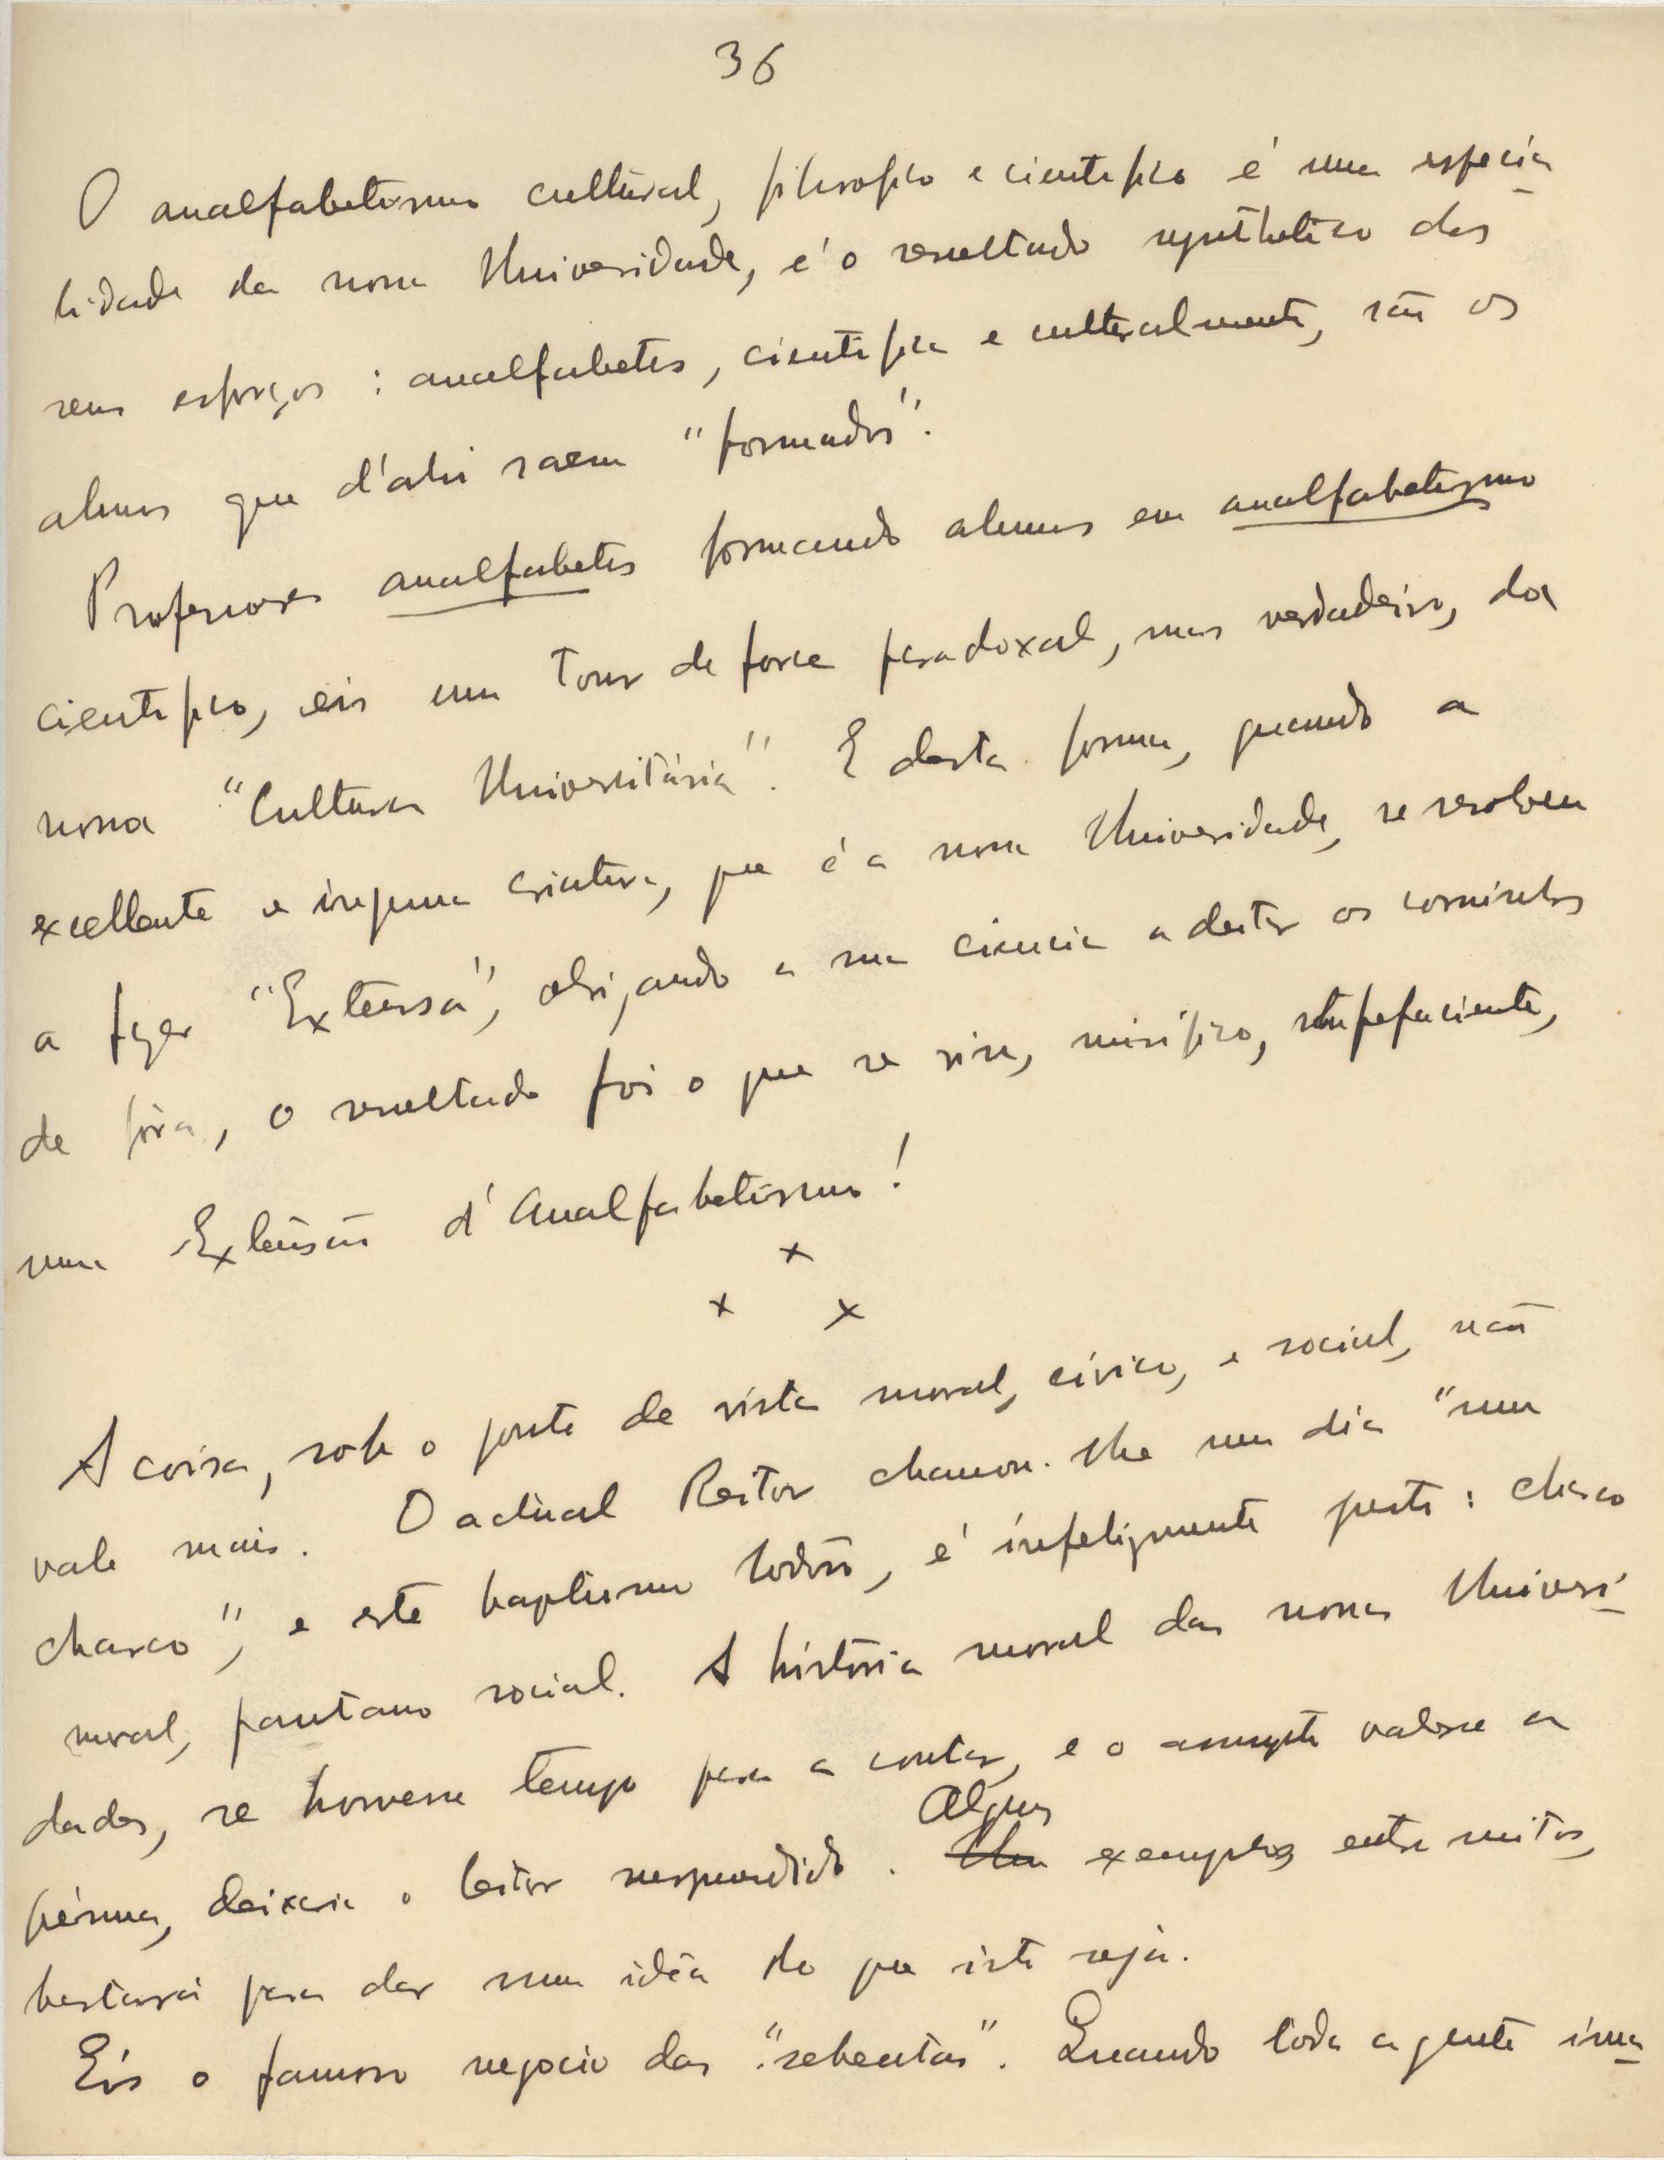 36
O analfabetismo cultural, filosofico e cientifico é uma especia
lidade da nossa Universidade, é o resultado synthetico dos
seus esforços : analfabetos, cientifica e culturalmente, são os
alunos que d'ahi saem "formados".
Professores analfabetos formando alunos em analfabetismo
cientifico, eis um tour de force paradoxal, mas verdadeiro, da
nossa "Cultura Universitária". E desta forma, quando a
excellente e ingenua criatura, que é a nossa Universidade, se resolveu
a fazer "Extensão", obrigando a sua ciencia a deitar os corninhos
de fóra, o resultado foi o que se viu, mirifico, stupefaciente,
uma Extensão d'Analfabetismo!
x
x x
A coisa, sob o ponto de vista moral, civico, e social, não
vale mais. O actual Reitor chamou-lhe um dia "um
charco", e este baptismo é infelizmente justo : charco
moral, pantano social. A história moral das nossas Universi
dades, se houvesse tempo para a contar, e o assumpto valesse a
penna, deixaria o leitor surpreendido. Alguns exemplos entre muitos,
bastará para dar uma idéa do que isto seja.
Eis o famoso negocio das "sebentas". Quando toda a gente ima